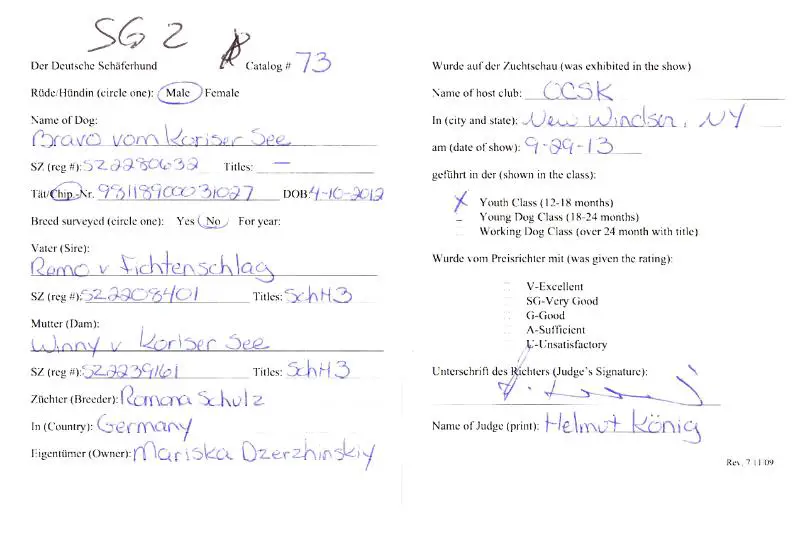 SG 2
Der Deutsche Schäferhund Catalog # 73
Rüde/Hündin (circle one): Male Female
Name of Dog:
Bravo vom Koriser See
SZ (reg #): SZ2280632 Titles: —
Tät/Chip.-Nr. 981189000031027 DOB: 4-10-2012
Breed surveyed (circle one): Yes No For year:
Vater (Sire):
Remo v Fichtenschlag
SZ (reg #): SZ2208401 Titles: SchH3
Mutter (Dam):
Winny v Koriser See
SZ (reg #): SZ2239161 Titles: SchH3
Züchter (Breeder): Ramona Schulz
In (Country): Germany
Eigentümer (Owner): Mariska Dzerzhinskiy
Wurde auf der Zuchtschau (was exhibited in the show)
Name of host club: CCSK
In (city and state): New Windsor, NY
am (date of show): 9-29-13
geführt in der (shown in the class):
X Youth Class (12-18 months)
Young Dog Class (18-24 months)
Working Dog Class (over 24 month with title)
Wurde vom Preisrichter mit (was given the rating):
V-Excellent
SG-Very Good
G-Good
A-Sufficient
U-Unsatisfactory
Unterschrift des Richters (Judge's Signature):
Name of Judge (print): Helmut König
Rev. 7/11/09